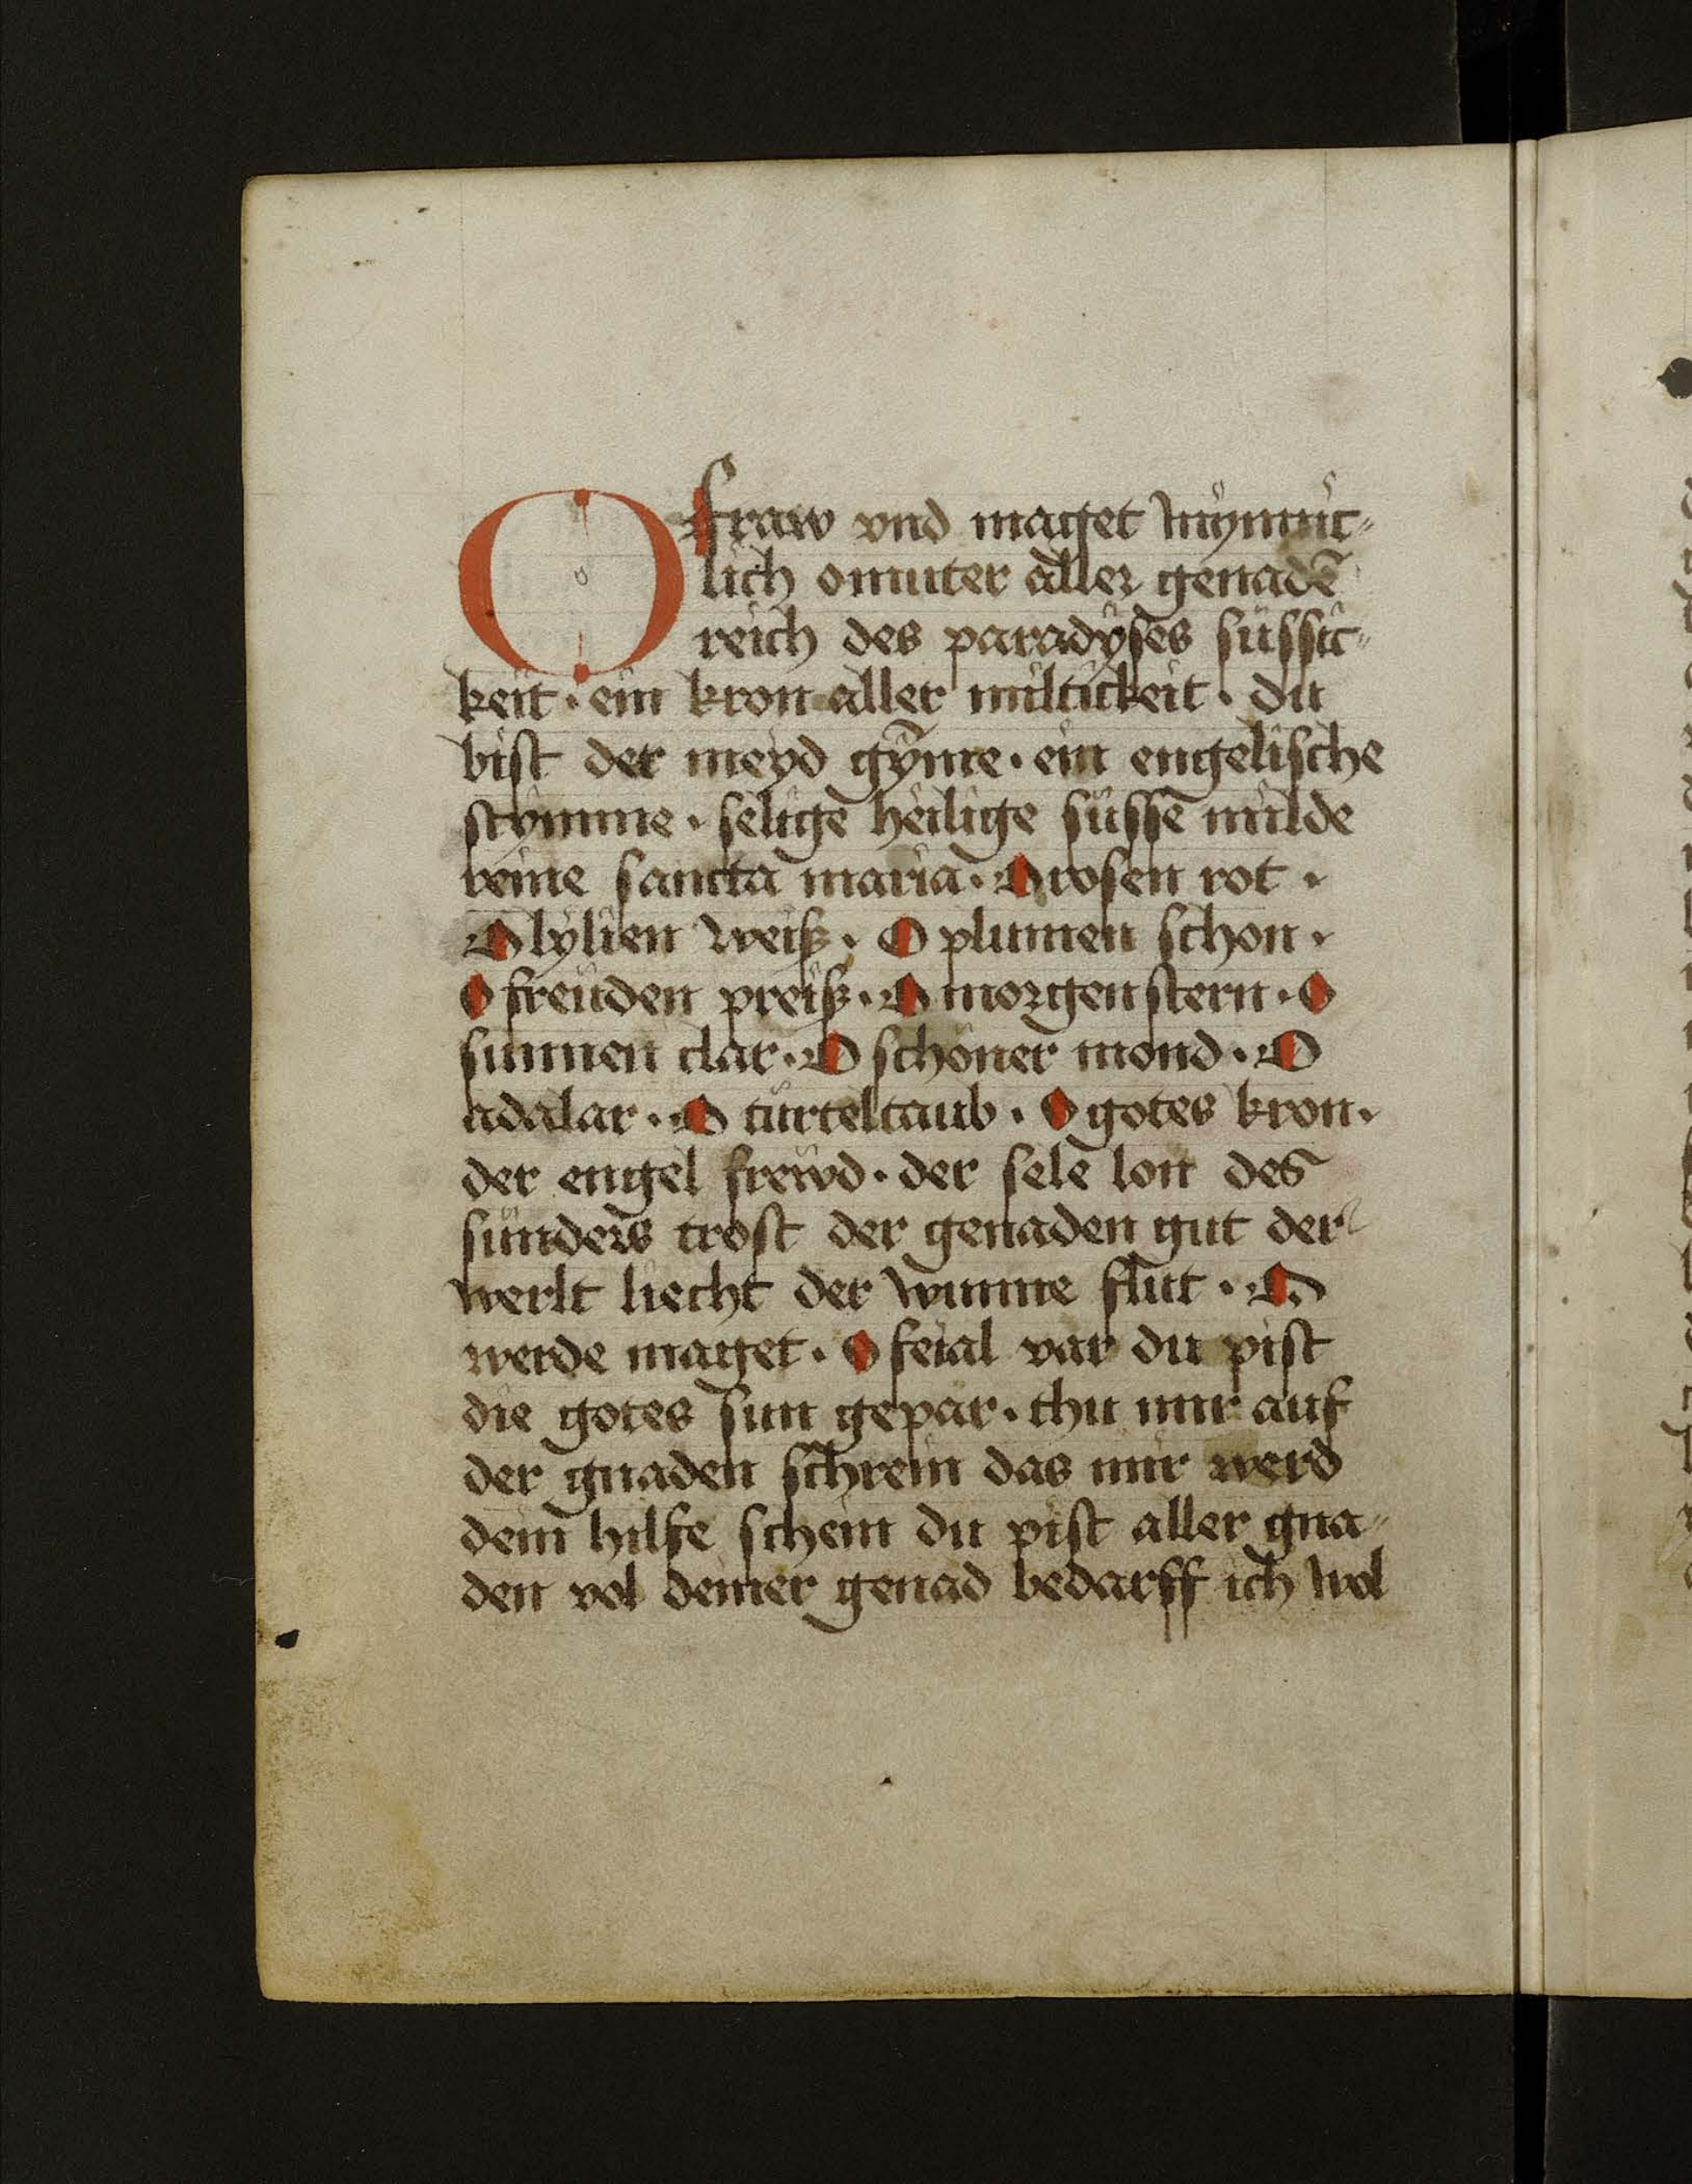 O fraw vnd maget wÿnnic⸗
lich o muter aller genadē
reich des paradÿses süssic⸗
keit · ein kron aller miltickeit · du
bist der meyd gȳme · ein engelische
stymme · selige heilige süsse milde
reine sancta maria · O rosen rot ·
O lylien weiß · O plumen schon ·
O freuden preiß · O morgenstern · O
sunnen clar · O schöner mond · O
adalar · O türteltaub · O gotes kron ·
der engel frewd · der sele lon des
sünders trost der genaden gut der
werlt liecht der wunne flut · O
werde maget · O feial var du pist
die gotes sun gepar · thu mir auf
der gnaden schrein das mir werd
dein hilfe schein du pist aller gna⸗
den vol deiner genad bedarff ich wol